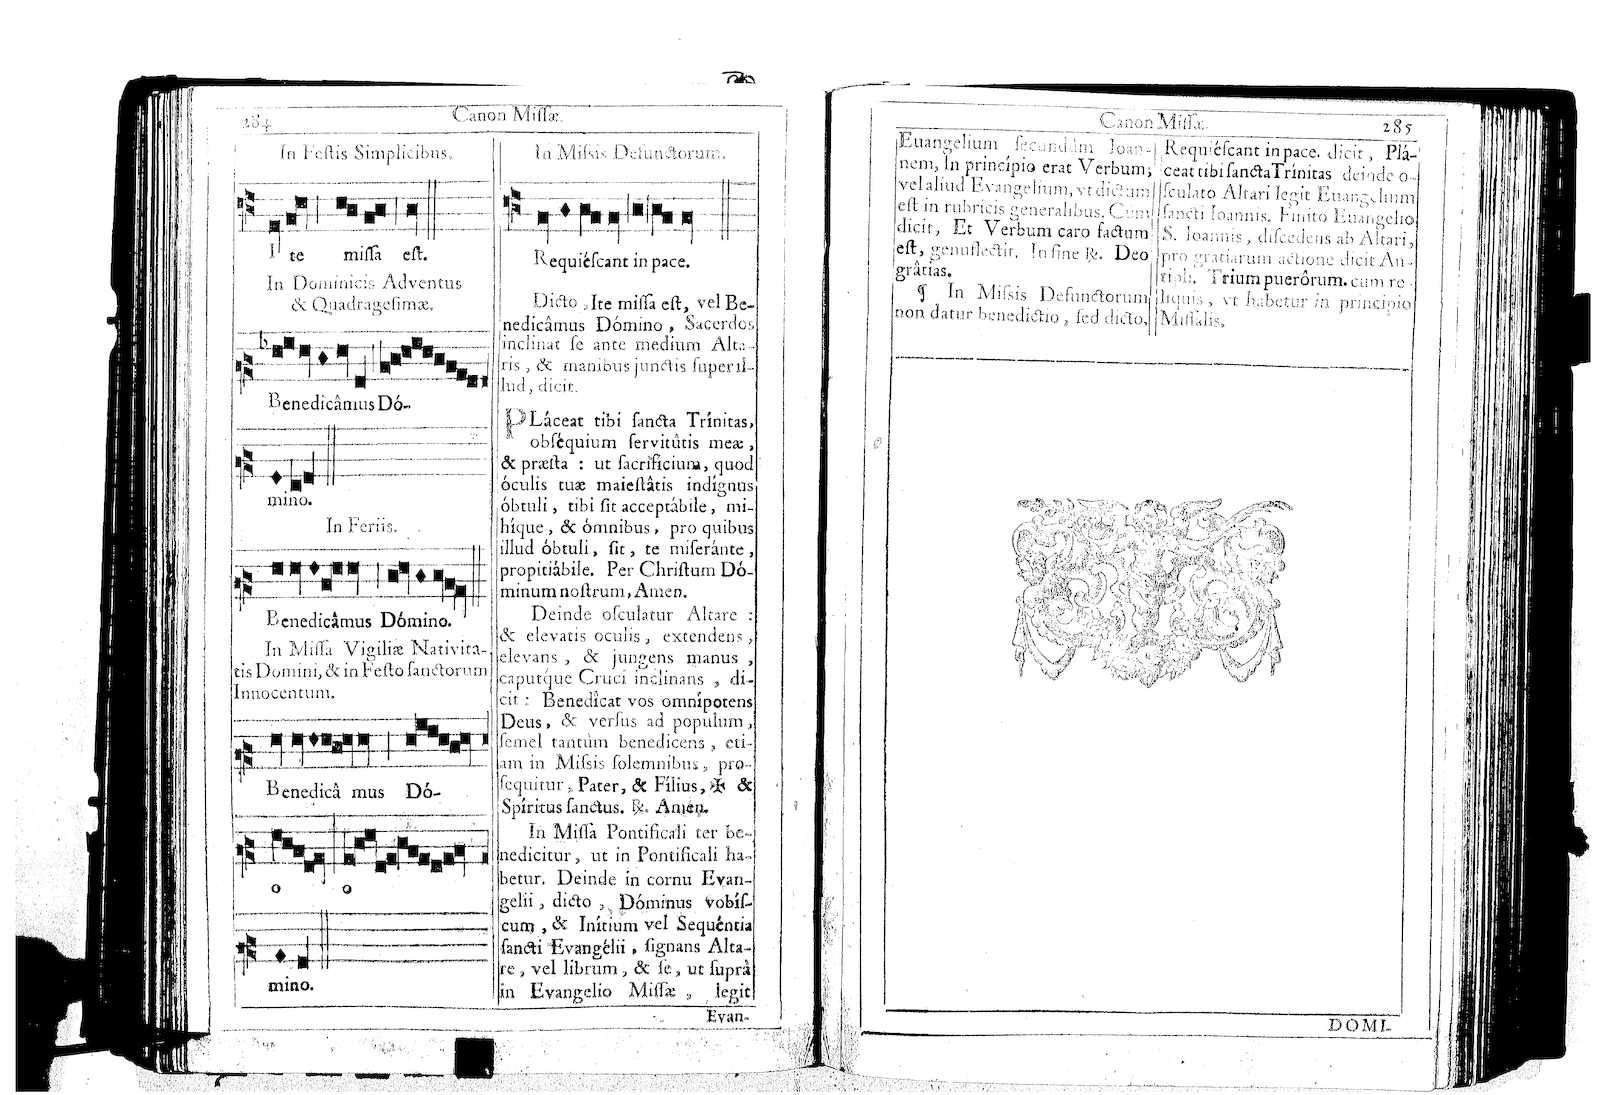 284
Canon Missæ.
In Festis Simplicibus.
I te missa est.
In Dominicis Adventus
& Quadragesimæ.
Benedicâmus Dó-
mino.
In Feriis.
Benedicâmus Dómino.
In Missa Vigiliæ Nativita-
tis Domini, & in Festo sanctorum
Innocentum.
Benedicâ mus Dó-
o o
mino.
In Missis Defunctorum.
Requiéscant in pace.
Dicto, Ite missa est, vel Be-
nedicâmus Dómino, Sacerdos
inclinat se ante medium Alta-
ris, & manibus junctis super il-
lud, dicit.
PLáceat tibi sancta Trínitas,
obséquium servitûtis meæ,
& præsta : ut sacrificium, quod
óculis tuæ maiestâtis indígnus
óbtuli, tibi sit acceptábile, mi-
híque, & ómnibus, pro quibus
illud óbtuli, sit, te miseránte,
propitiábile. Per Christum Dó-
minum nostrum, Amen.
Deinde osculatur Altare :
& elevatis oculis, extendens,
elevans, & jungens manus,
caputque Cruci inclinans, di-
cit : Benedîcat vos omnípotens
Deus, & versus ad populum,
semel tantùm benedicens, eti-
am in Missis solemnibus, pro-
sequitur, Pater, & Fílius, ✠ &
Spíritus sanctus. ℟. Amen.
In Missa Pontificali ter be-
nedicitur, ut in Pontificali ha-
betur. Deinde in cornu Evan-
gelii, dicto, Dóminus vobís-
cum, & Inítium vel Sequéntia
sancti Evangélii, signans Alta-
re, vel librum, & se, ut suprà
in Evangelio Missæ, legit
Evan-
Canon Missæ.
285
Euangelium secundùm Ioan-
nem, In princípio erat Verbum,
vel aliud Evangelium, vt dictum
est in rubricis generalibus. Cùm
dicit, Et Verbum caro factum
est, genuflectit. In fine ℟. Deo
grâtias.
¶ In Missis Defunctorum
non datur benedictio, sed dicto,
Requiéscant in pace. dicit, Plá-
ceat tibi sancta Trínitas deinde o-
sculato Altari legit Euangelium
sancti Ioannis. Finito Euangelio
S. Ioannis, discedens ab Altari,
pro gratiarum actione dicit An-
tiph. Trium puerôrum. cum re-
liquis, vt habetur in principio
Missalis.
DOMI-